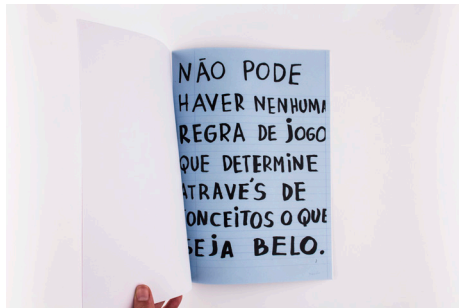 NÃO PODE
HAVER NENHUMA
REGRA DE JOGO
QUE DETERMINE
ATRAVÉS DE
CONCEITOS O QUE
SEJA BELO.